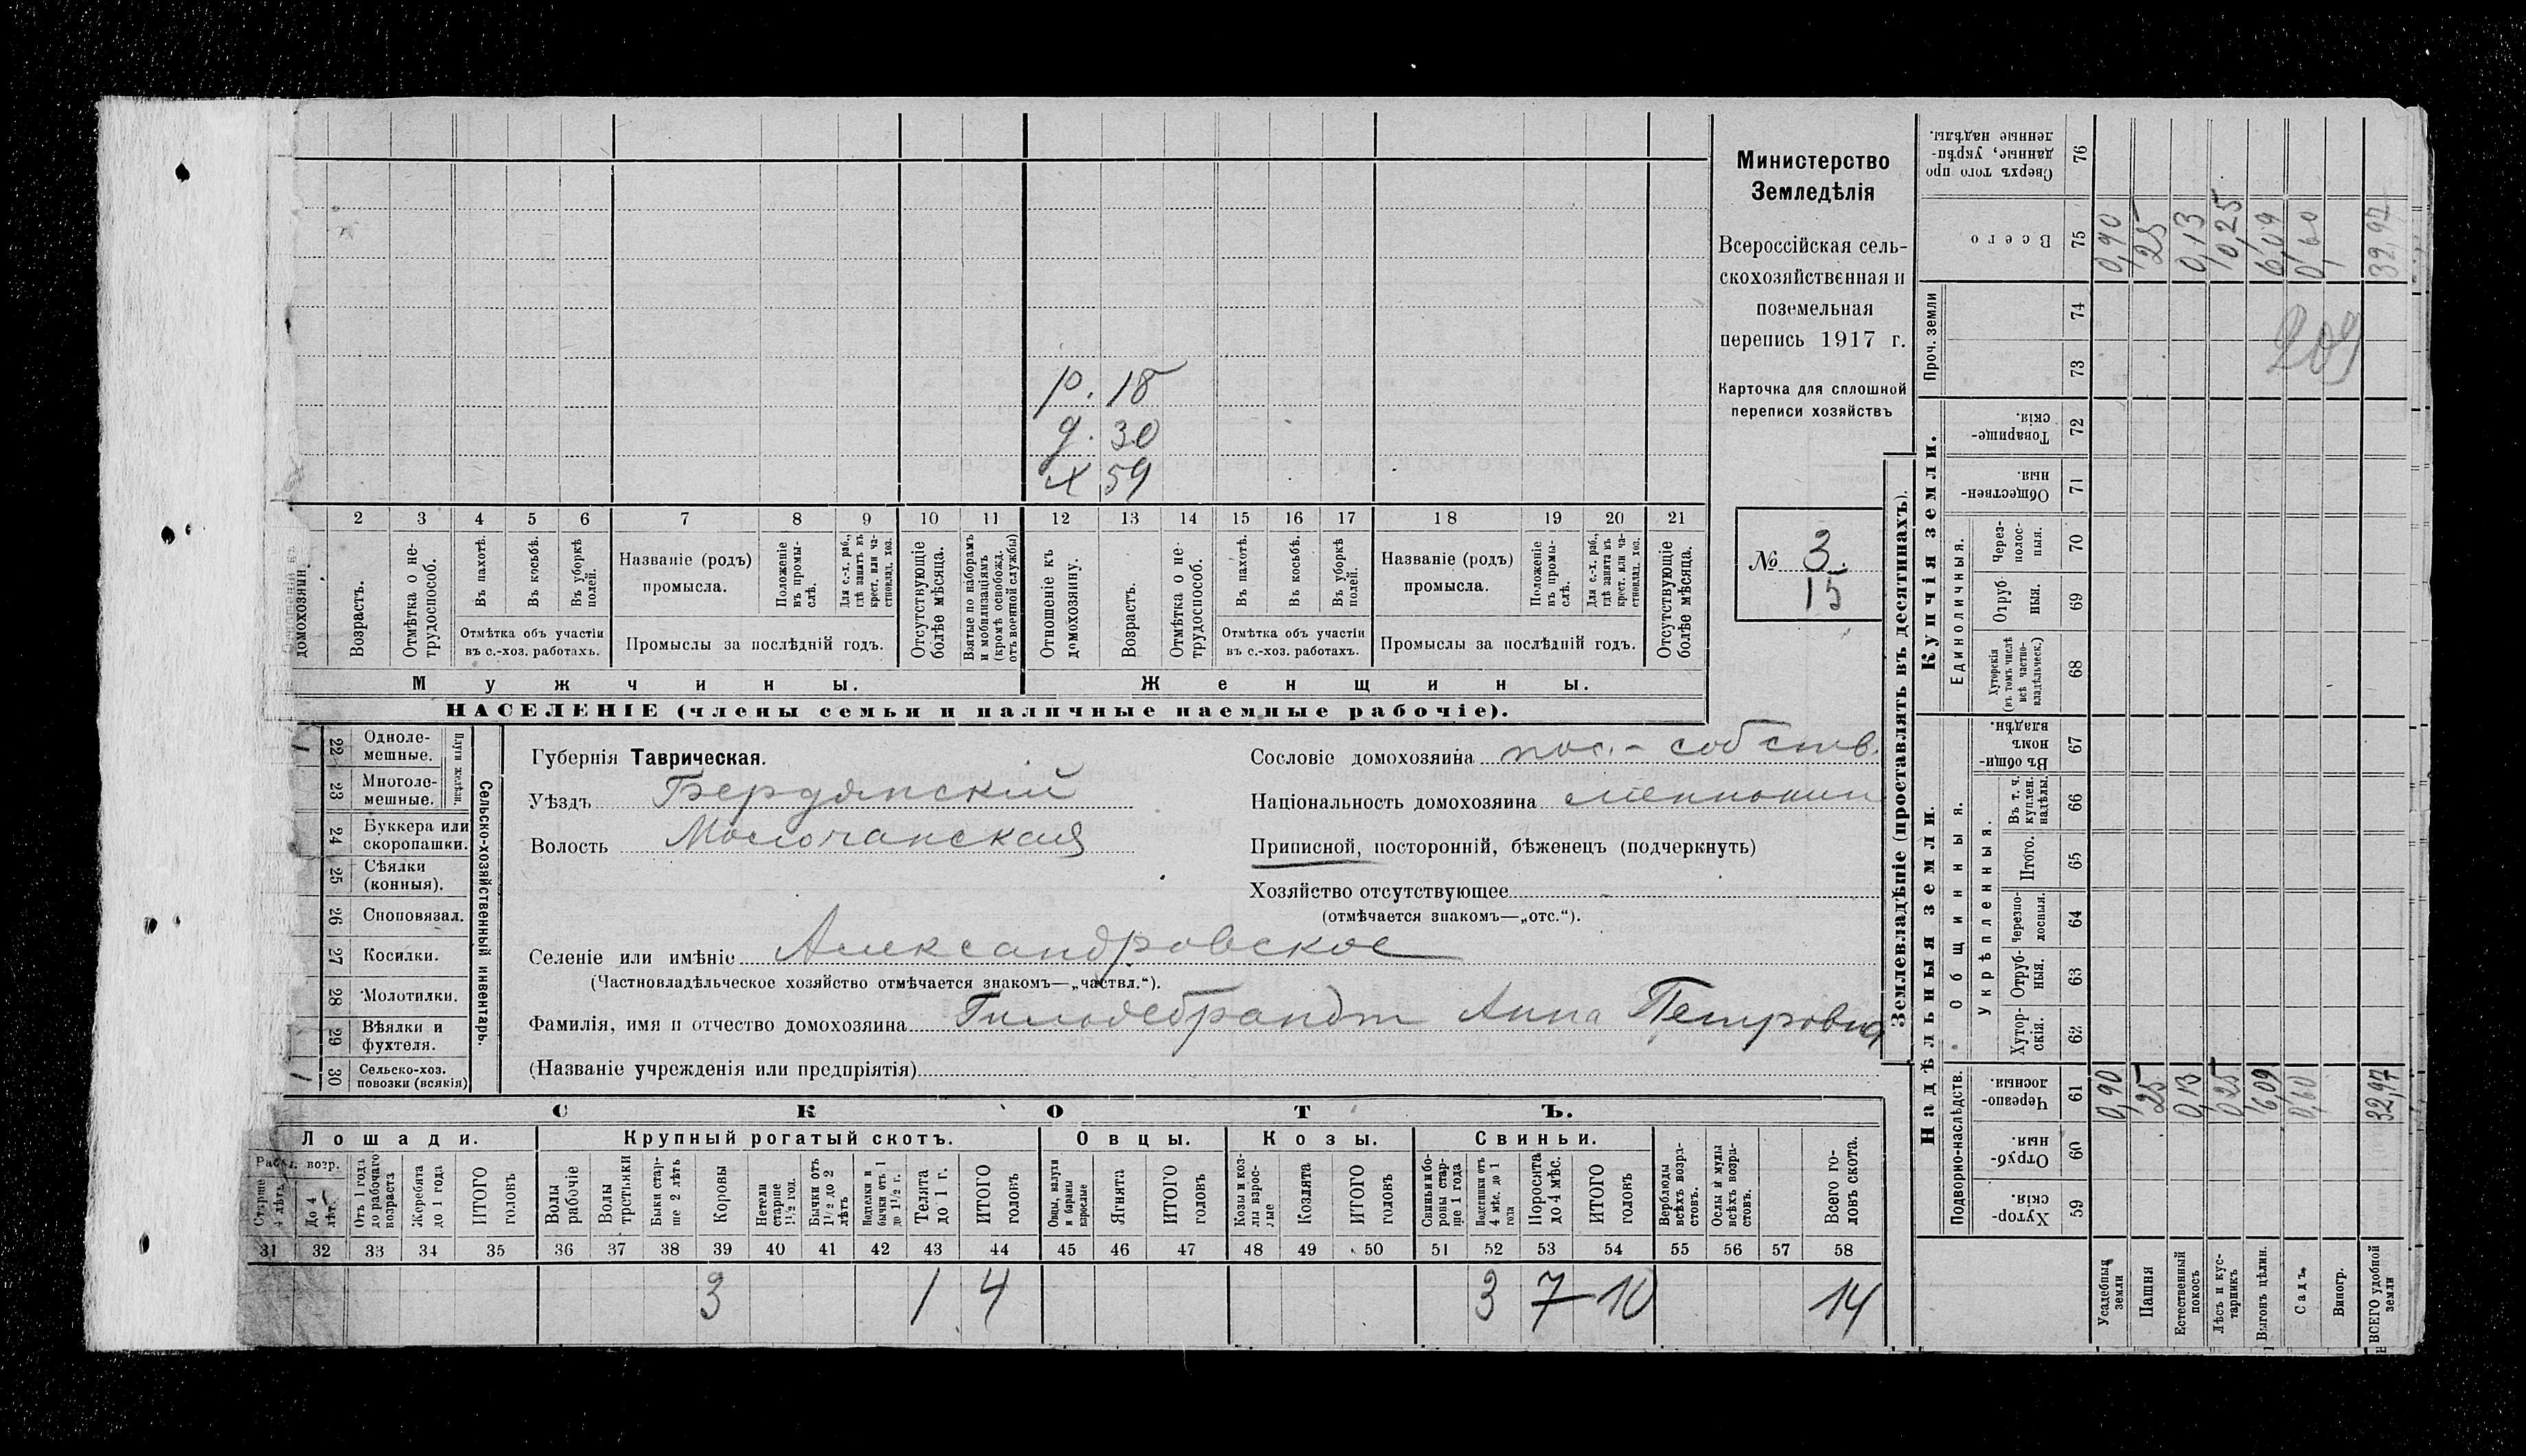 Министерство
Земледѣлія
Всероссійская сель-
скохозяйственная и
поземельная
перепись 1917 г.
Карточка для сплошной
переписи хозяйствъ
№ 3.
15
р. 18
д. 30
х 59
2 3 4 5 6 7 8 9 10 11 12 13 14 15 16 17 18 19 20 21
домохозяин.
Возрастъ.
Отмѣтка о не-
трудоспособ.
Въ пахотѣ.
Въ косьбѣ.
Въ уборкѣ
полей.
Отмѣтка объ участіи
въ с.-хоз. работахъ.
Названіе (родъ)
промысла.
Положеніе
въ промы-
слѣ.
Для с.-х. раб.,
гдѣ занятъ въ
крест. или ча-
стновлад. хоз.
Промыслы за послѣдній годъ.
Отсутствующіе
болѣе мѣсяца.
Взятые по наборамъ
и мобилизаціямъ
(кромѣ освобожд.
отъ военной службы)
Отношеніе къ
домохозяину.
Возрастъ.
Отмѣтка о не-
трудоспособ.
Въ пахотѣ.
Въ косьбѣ.
Въ уборкѣ
полей.
Отмѣтка объ участіи
въ с.-хоз. работахъ.
Названіе (родъ)
промысла.
Положеніе
въ промы-
слѣ.
Для с.-х. раб.,
гдѣ занята въ
крест. или ча-
стновлад. хоз.
Промыслы за послѣдній годъ.
Отсутствующіе
болѣе мѣсяца.
Мужчины.
Женщины.
НАСЕЛЕНІЕ (члены семьи и наличные наемные рабочіе).
22 Одноле-
мешные.
23 Многоле-
мешные.
Плуги желѣзн.
24 Буккера или
скоропашки.
25 Сѣялки
(конныя).
26 Сноповязал.
27 Косилки.
28 Молотилки.
29 Вѣялки и
фухтеля.
30 Сельско-хоз.
повозки (всякія)
Сельско-хозяйственный инвентарь.
Губернія Таврическая.
Уѣздъ Бердянскій
Волость Молочанская
Сословіе домохозяина пос.- собств.
Національность домохозяина меннонит
Приписной, посторонній, бѣженецъ (подчеркнуть)
Хозяйство отсутствующее
(отмѣчается знакомъ—„отс.“).
Селеніе или имѣніе Александровское
(Частновладѣльческое хозяйство отмѣчается знакомъ—„частвл.“).
Фамилія, имя и отчество домохозяина Гильдебрандт Анна Петровна
(Названіе учрежденія или предпріятія)
СКОТЪ.
Лошади.
Крупный рогатый скотъ.
Овцы.
Козы.
Свиньи.
Старше
4 лѣтъ.
До 4
лѣт.
Отъ 1 года
до рабочаго
возраста
Жеребята
до 1 года
ИТОГО
головъ
Волы
рабочіе
Волы
третьяки
Быки стар-
ше 2 лѣтъ
Коровы
Нетели
старше
1½ год.
Бычки отъ
1½ до 2
лѣтъ
Подтелки и
бычки отъ 1
до 1½ г.
Телята
до 1 г.
ИТОГО
головъ
Овцы, валухи
и бараны
взрослые
Ягнята
ИТОГО
головъ
Козы и коз-
лы взрос-
лые
Козлята
ИТОГО
головъ
Свиньи бо-
ровы стар-
ше 1 года
Подсвинки отъ
4 мѣс. до 1
года
Поросята
до 4 мѣс.
ИТОГО
головъ
Верблюды
всѣхъ возра-
стовъ.
Ослы и мулы
всѣхъ возра-
стовъ.
Всего го-
ловъ скота.
31 32 33 34 35 36 37 38 39 40 41 42 43 44 45 46 47 48 49 50 51 52 53 54 55 56 57 58
3 1 4 3 7 10 14
Землевладѣніе (проставлять въ десятинахъ).
Надѣльныя земли.
Купчія земли.
Проч. земли
Подворно-наслѣдств.
Общинныя.
Укрѣпленныя.
Единоличныя.
Хутор-
скія.
Отруб-
ныя.
Черезпо-
лосныя.
Хутор-
скія.
Отруб-
ныя.
Черезпо-
лосныя.
Итого.
Въ т. ч.
куплен.
надѣлы.
Въ общин-
номъ
владѣн.
Хуторскія
(въ томъ числѣ
всѣ частно-
владѣльческ.)
Отруб
ныя.
Через-
полос-
ныя.
Обществен-
ныя.
Товарище-
скія.
Всего
Сверхъ того про
данные, укрѣп-
ленные надѣлы.
59 60 61 62 63 64 65 66 67 68 69 70 71 72 73 74 75 76
Усадебныя
земли
0,90 0,90
Пашня
25 25
Естественный
покосъ
0,13 0,13
Лѣсъ и кус-
тарникъ
0,25 0,25
Выгонъ цѣлин.
6,09 6,09
Садъ
0,60 0,60
Виногр.
ВСЕГО удобной
земли
32,97 32,97
209